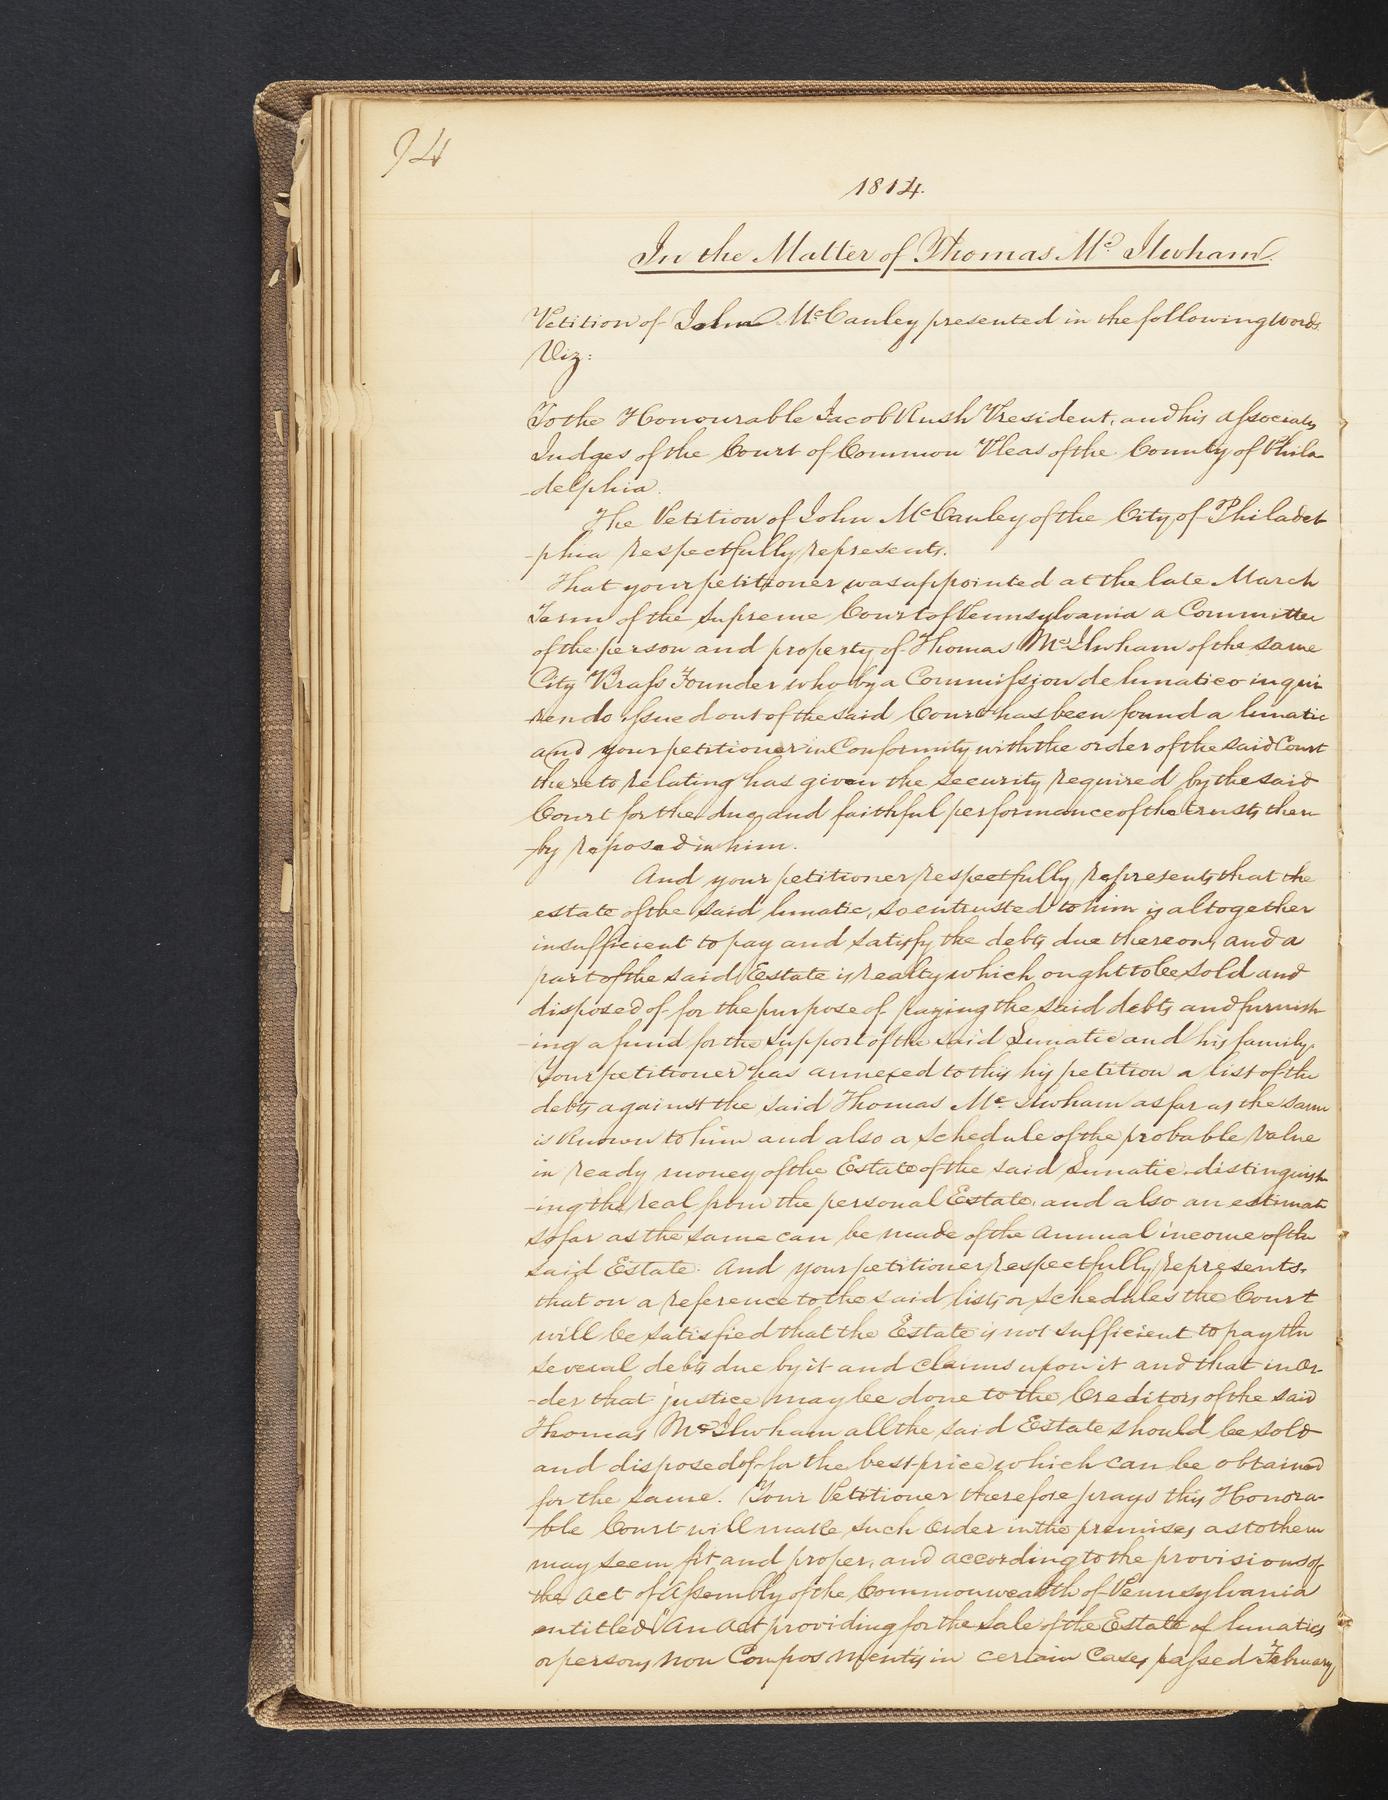 94
1814.
In the Matter of Thomas Mc. Ilwham
Petition of John McCauley presented in the following words
Viz:
To the Honourable Jacob Rush President, and his associates
Judges of the Court of Common Pleas of the County of Phila-
-delphia.
The Petition of John McCauley of the City of Philadel-
-phia respectfully represents.
That your petitioner was appointed at the late March
Term of the Supreme Court of Pennsylvania a Committee
of the person and property of Thomas Mc.Ilwham of the same
City Brass Founder who by a Commission de lunatico inqui-
-rendo issued out of the said Court has been found a lunatic
and your petitioner in Conformity with the order of the said Court
thereto relating has given the security required by the said
Court for the due and faithful performance of the trusts there-
-by reposed in him.
And your petitioner respectfully represents that the
estate of the said lunatic, so entrusted to him is altogether
insufficient to pay and satisfy the debts due thereon, and a
part of the said Estate is realty which ought to be sold and
disposed of for the purpose of paying the said debts and furnish-
-ing a fund for the support of the said Lunatic and his family.
Your petitioner has annexed to this his petition a list of the
debts against the said Thomas Mc. Ilwham as far as the same
is known to him and also a schedule of the probable value
in ready money of the Estate of the said Lunatic distinguish-
-ing the real from the personal Estate, and also an estimate
so far as the same can be made of the annual income of the
said Estate. And your petitioner respectfully represents.
that on a reference to the said lists or schedules the Court
will be satisfied that the Estate is not sufficient to pay the
several debts due by it and claims upon it and that in or-
-der that justice may be done to the Creditors of the said
Thomas McIlwham all the said Estate should be sold
and disposed of for the best price which can be obtained
for the same. Your Petitioner therefore prays this Honora-
-ble Court will make such order in the premises as to them
may seem fit and proper, and according to the provisions of
the act of Assembly of the Commonwealth of Pennsylvania
entitled "An Act providing for the sale of the Estate of lunatics
or persons non Compos mentis in certain Cases passed February